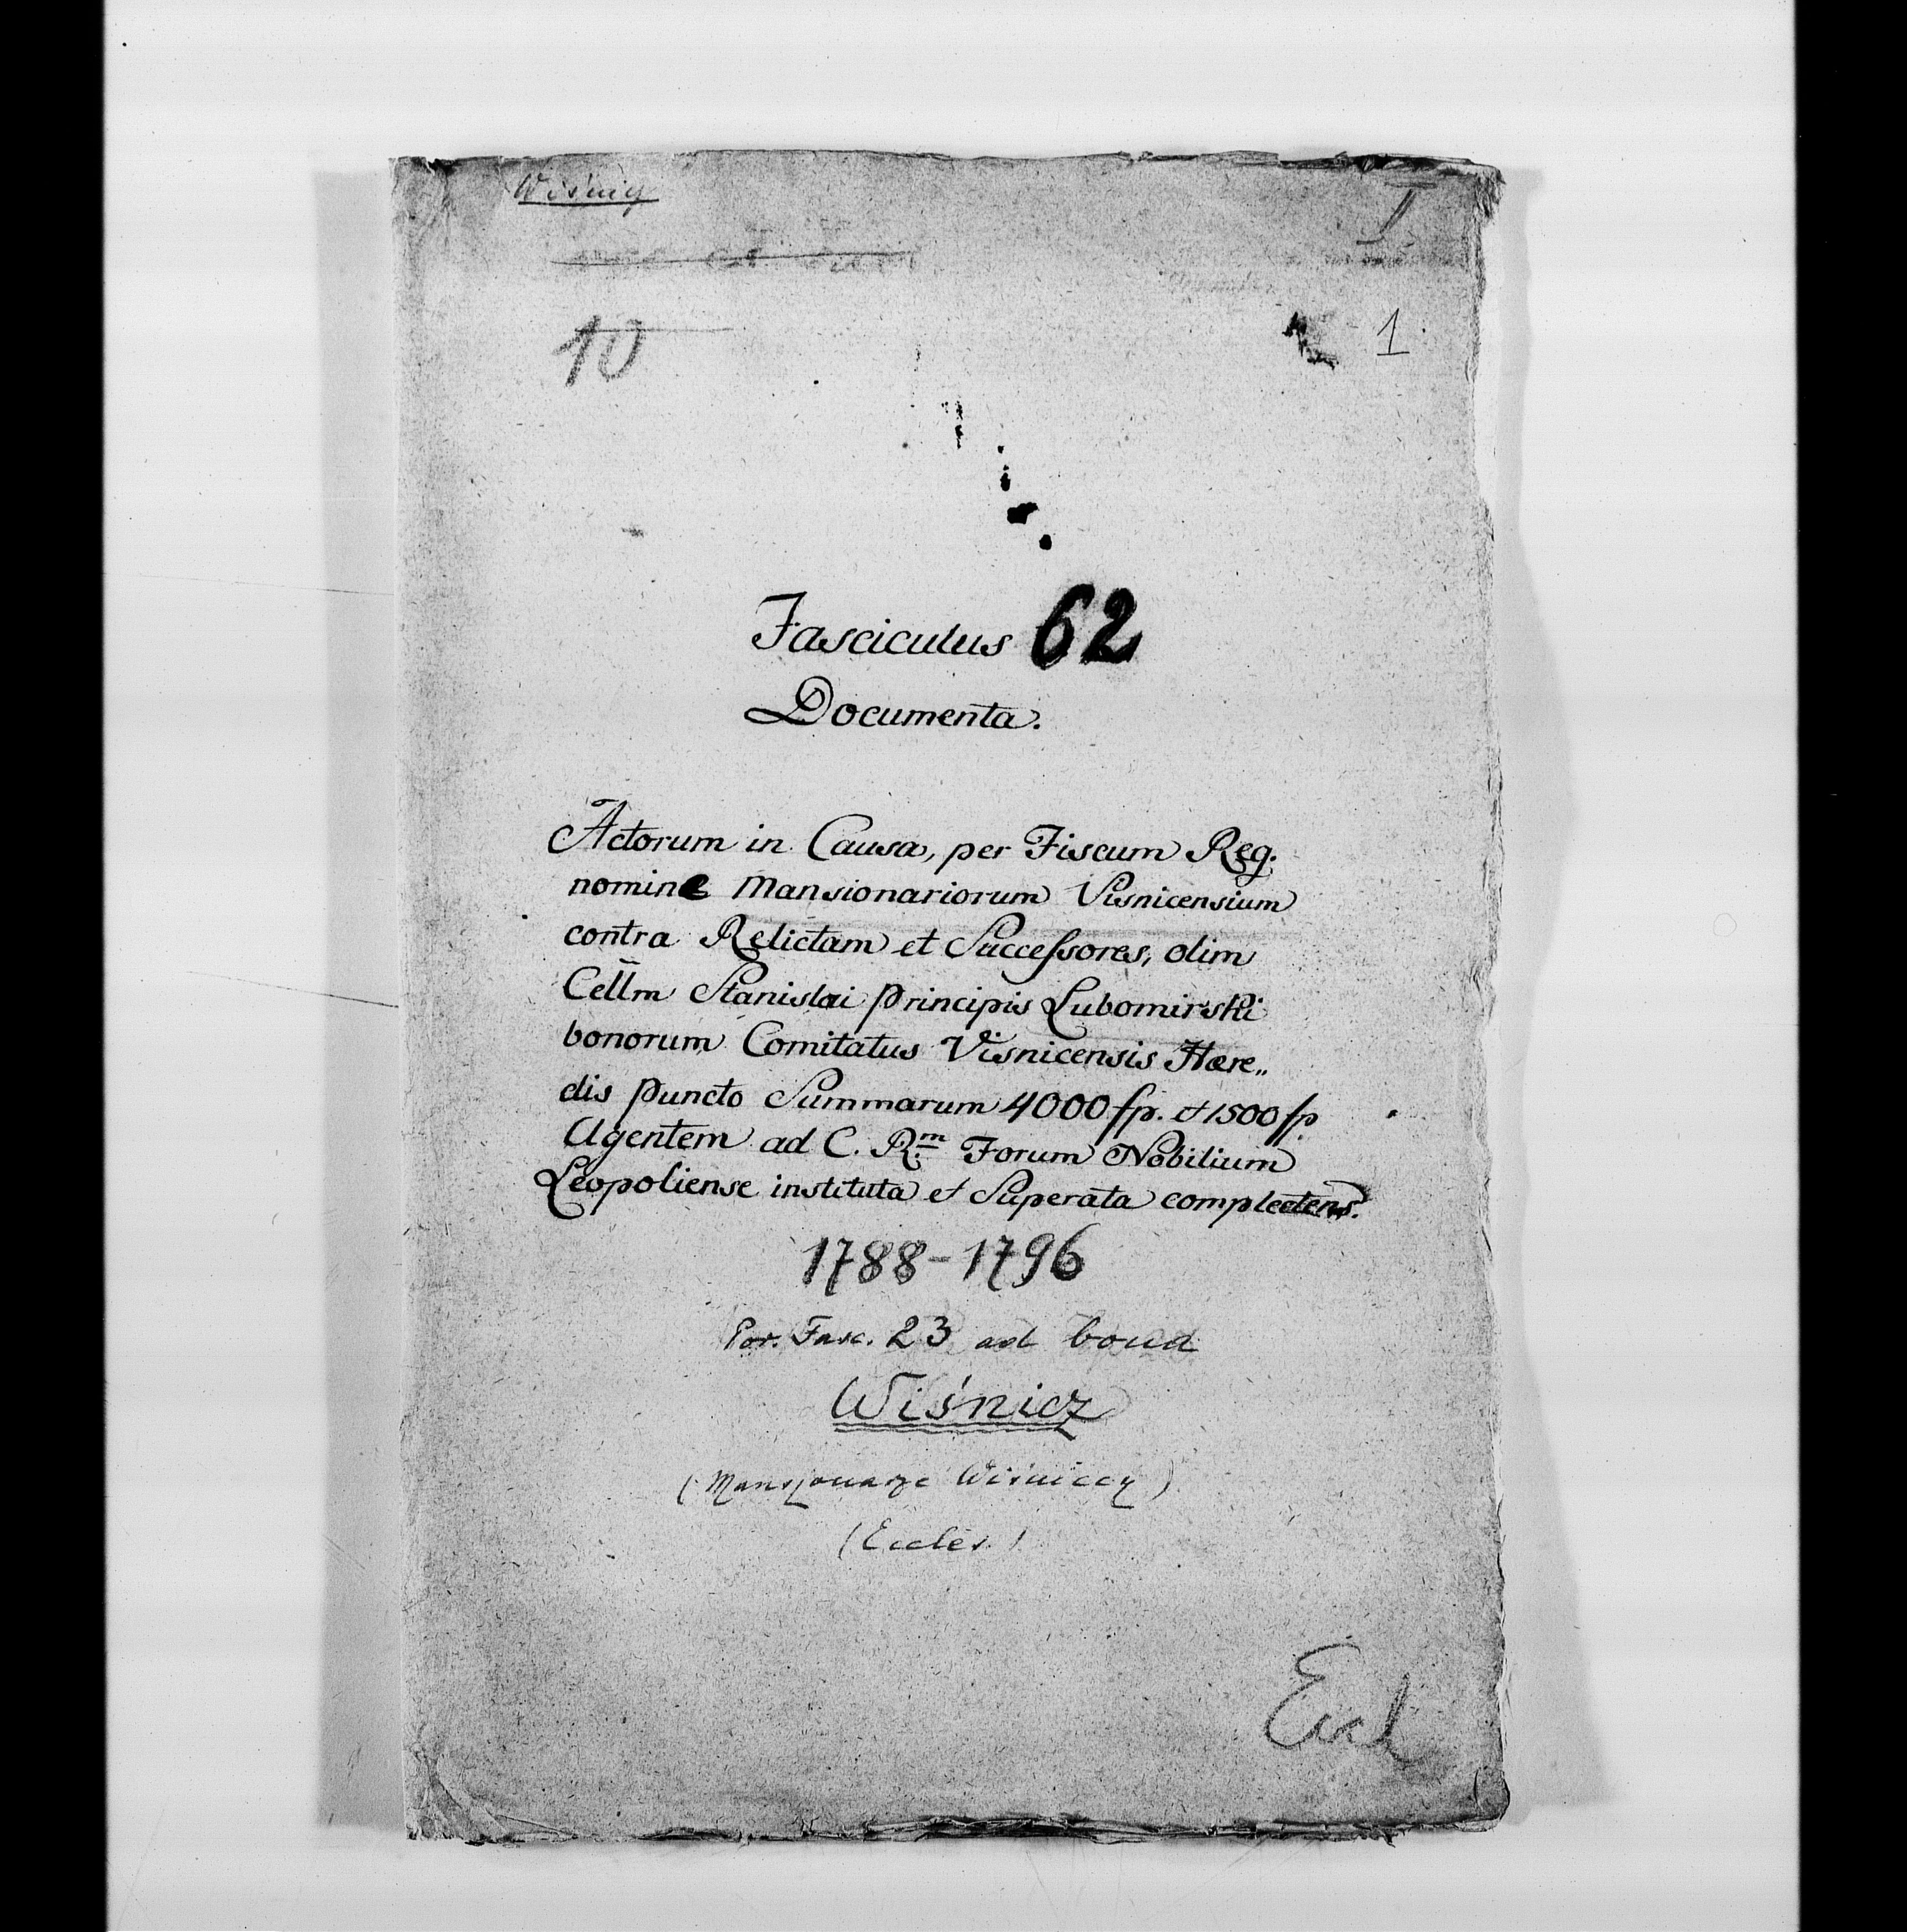 Wiśnicz
I
10
1
Fasciculus 62
Documenta.
Actorum in Causa, per Fiscum Reg.
nomine Mansionariorum Visnicensium
contra Relictam et Successores, olim
Cellm Stanislai Principis Lubomirski
bonorum Comitatus Visnicensis Hære„
dis puncto Summarum 4000 fp. et 1500 fp
Agentem ad C. R.m Forum Nobilium
Leopoliense instituta et Superata complectens.
1788-1796
Por. Fasc. 23 ad bona
Wiśnicz
(Mansjonarze Wiśniccy)
(Eccles.)
Eccl